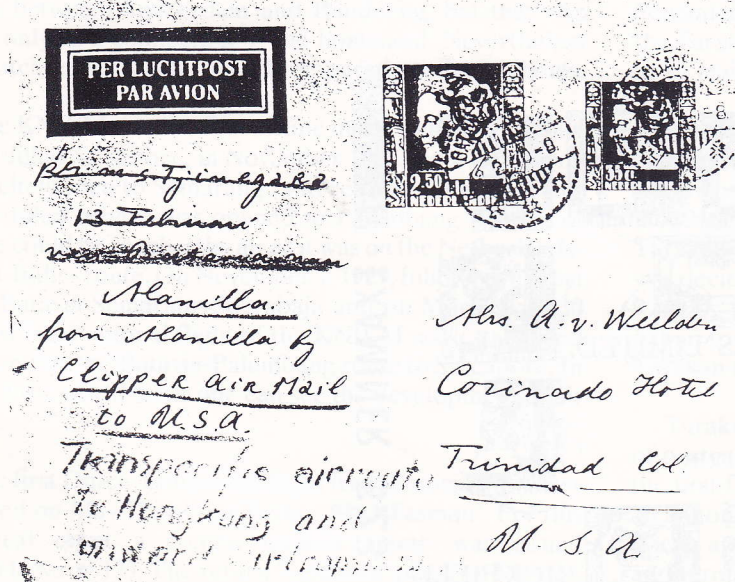 PER LUCHTPOST
PAR AVION
2.50 Gld
NEDERL INDIE
35 ct
NEDERL INDIE
per m.s. Tjinegara
13 Februari
van Batavia naar
Manilla.
from Manilla by
Clipper Air Mail
to U.S.A.
Transpacific air route
to Hongkong and
onward
Mrs. A. v. Weelden
Corinado Hotel
Trinidad Col
U S A